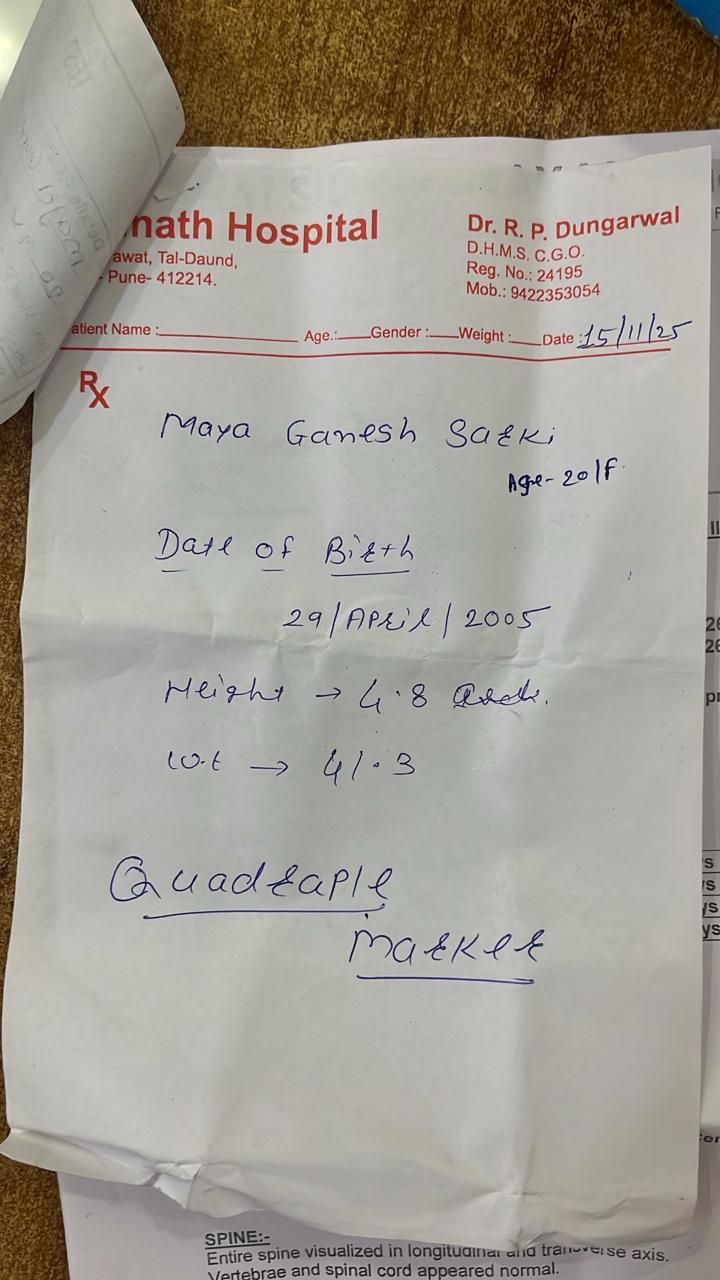 nath Hospital
awat, Tal-Daund,
Pune- 412214.
Dr. R. P. Dungarwal
D.H.M.S. C.G.O.
Reg. No.: 24195
Mob.: 9422353054
atient Name : Age.: Gender : Weight : Date : 15/11/25
Rx
Maya Ganesh Sarki
Age- 20/F.
Date of Birth
29/April/2005
Height → 4.8
wt → 41.3
Quadraple
Marker
SPINE:-
Entire spine visualized in longitudinal and transverse axis.
Vertebrae and spinal cord appeared normal.